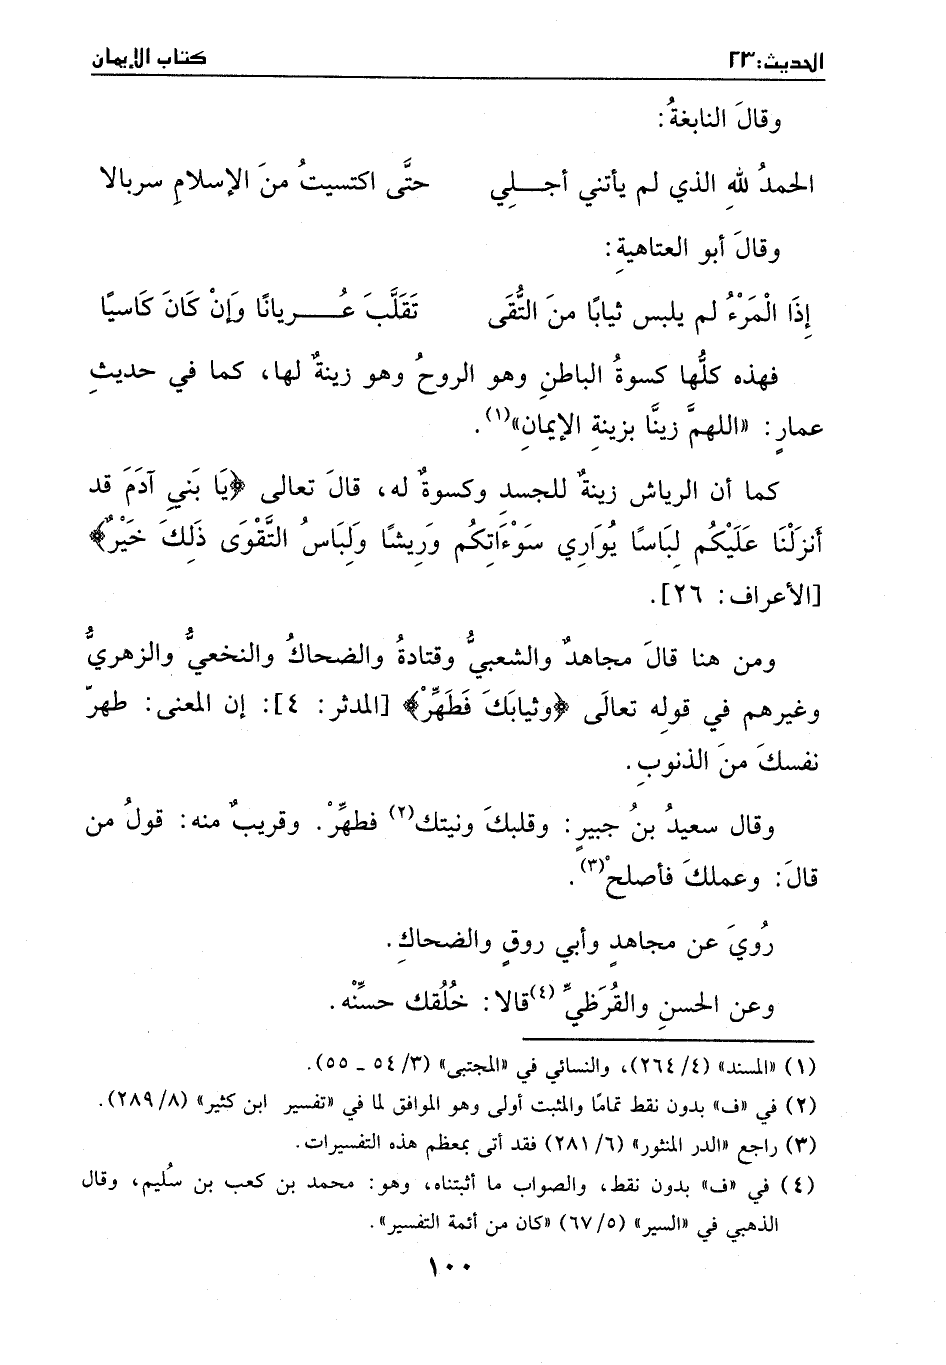 الحديث: ٢٣ كتاب الإيمان
وقالَ النابغةُ:
الحمدُ للهِ الذي لم يأتني أجـــلِي حتَّى اكتسيتُ منَ الإسلامِ سربالا
وقالَ أبو العتاهيةِ:
إِذَا الْمَرْءُ لم يلبس ثيابًا منَ التُّقَى تَقَلَّبَ عُــــريانًا وَإِنْ كَانَ كَاسيًا
فهذه كلُّها كسوةُ الباطنِ وهو الروحُ وهو زينةٌ لها، كما في حديثِ
عمارٍ: «اللهمَّ زينَّا بزينةِ الإيمانِ»(١).
كما أن الرياش زينةٌ للجسدِ وكسوةٌ له، قالَ تعالى ﴿يَا بَنِي آدَمَ قد
أَنزَلْنَا عَلَيْكُم لِبَاسًا يُوَارِي سَوْءَاتِكُم وَرِيشًا وَلِبَاسُ التَّقْوَى ذَلِكَ خَيْرٌ﴾
[الأعراف: ٢٦].
ومن هنا قالَ مجاهدٌ والشعبيُّ وقتادةُ والضحاكُ والنخعيُّ والزهريُّ
وغيرهم في قولِه تعالَى ﴿وثيابَكَ فَطَهِّرْ﴾ [المدثر: ٤]: إن المعنى: طهرّ
نفسكَ منَ الذنوبِ.
وقال سعيدُ بنُ جبيرٍ: وقلبكَ ونيتك(٢) فطهِّرْ. وقريبٌ منه: قولُ من
قالَ: وعملكَ فأصلحْ(٣).
رُويَ عن مجاهدٍ وأبي روقٍ والضحاكِ.
وعن الحسنِ والقُرَظيِّ(٤) قالا: خُلُقك حسِّنْه.
(١) «المسند» (٤/ ٢٦٤)، والنسائي في «المجتبى» (٣/ ٥٤ ـ ٥٥).
(٢) في «ف» بدون نقط تمامًا والمثبت أولى وهو الموافق لما في «تفسير ابن كثير» (٨/ ٢٨٩).
(٣) راجع «الدر المنثور» (٦/ ٢٨١) فقد أتى بمعظم هذه التفسيرات.
(٤) في «ف» بدون نقط، والصواب ما أثبتناه، وهو: محمد بن كعب بن سُليم، وقال
الذهبي في «السير» (٥/ ٦٧) «كان من أئمة التفسير».
١٠٠